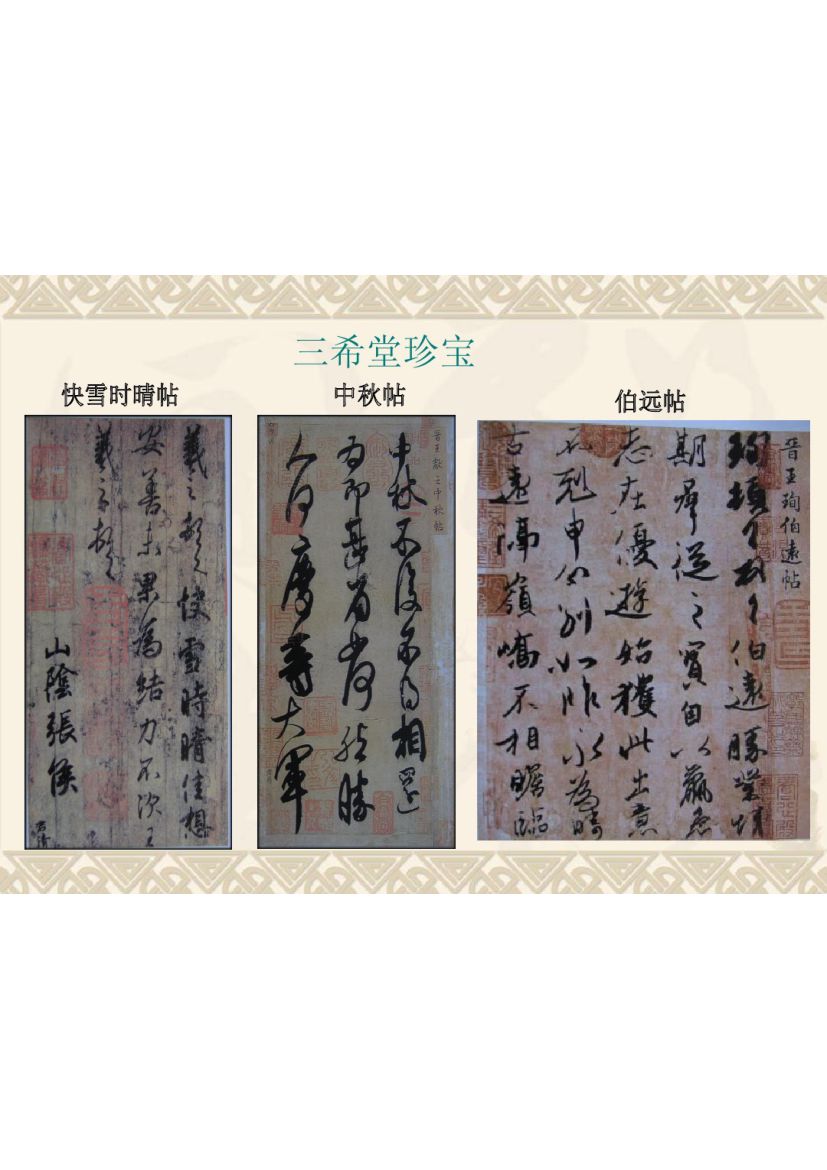 三希堂珍宝
快雪时晴帖
中秋帖
伯远帖
羲之頓首快雪時晴佳想
安善未果為結力不次王
羲之頓首
山陰張侯
晉王獻之中秋帖
中秋不復不得相還
為即甚省如何然勝
人何慶等大軍
晉王珣伯遠帖
珣頓首頓首伯遠勝業情
期群從之寶自以羸患
志在優遊始獲此出意
不剋申分別如昨永為疇
古遠隔嶺嶠不相瞻臨